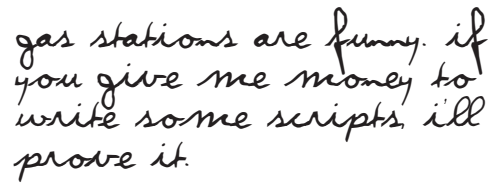 gas stations are funny. if
you give me money to
write some scripts, i'll
prove it.